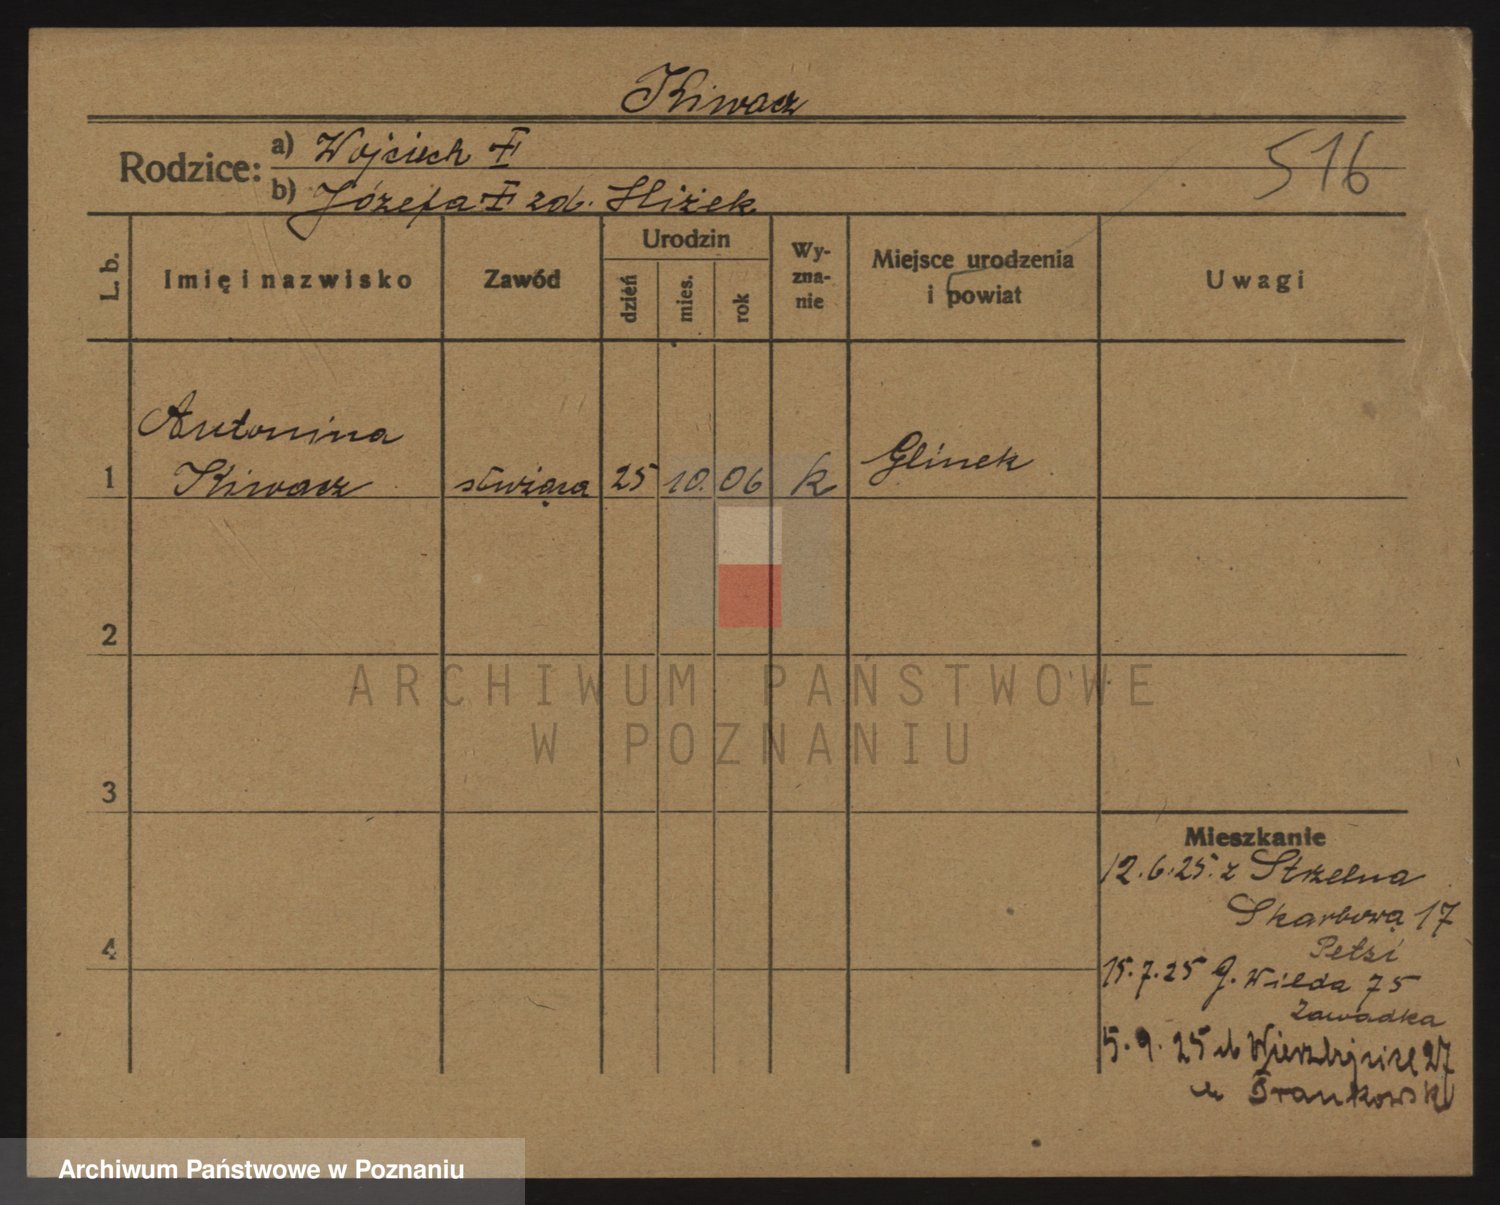 Kiwacz
Rodzice: a) Wojciech
b) Józefa zd.
516
L. b.
Imię i nazwisko
Zawód
Urodzin
dzień
mies.
rok
Wy-
zna-
nie
Miejsce urodzenia
i powiat
Uwagi
Antonina
1 Kiwacz służąca 25 10. 06 k Glinek
2
3
4
Mieszkanie
12.6.25. z Strzelna
Skarbowa 17
15.7.25 G. Wilda 75
Zawadka
5.9.25 27
ARCHIWUM PAŃSTWOWE
W POZNANIU
Archiwum Państwowe w Poznaniu